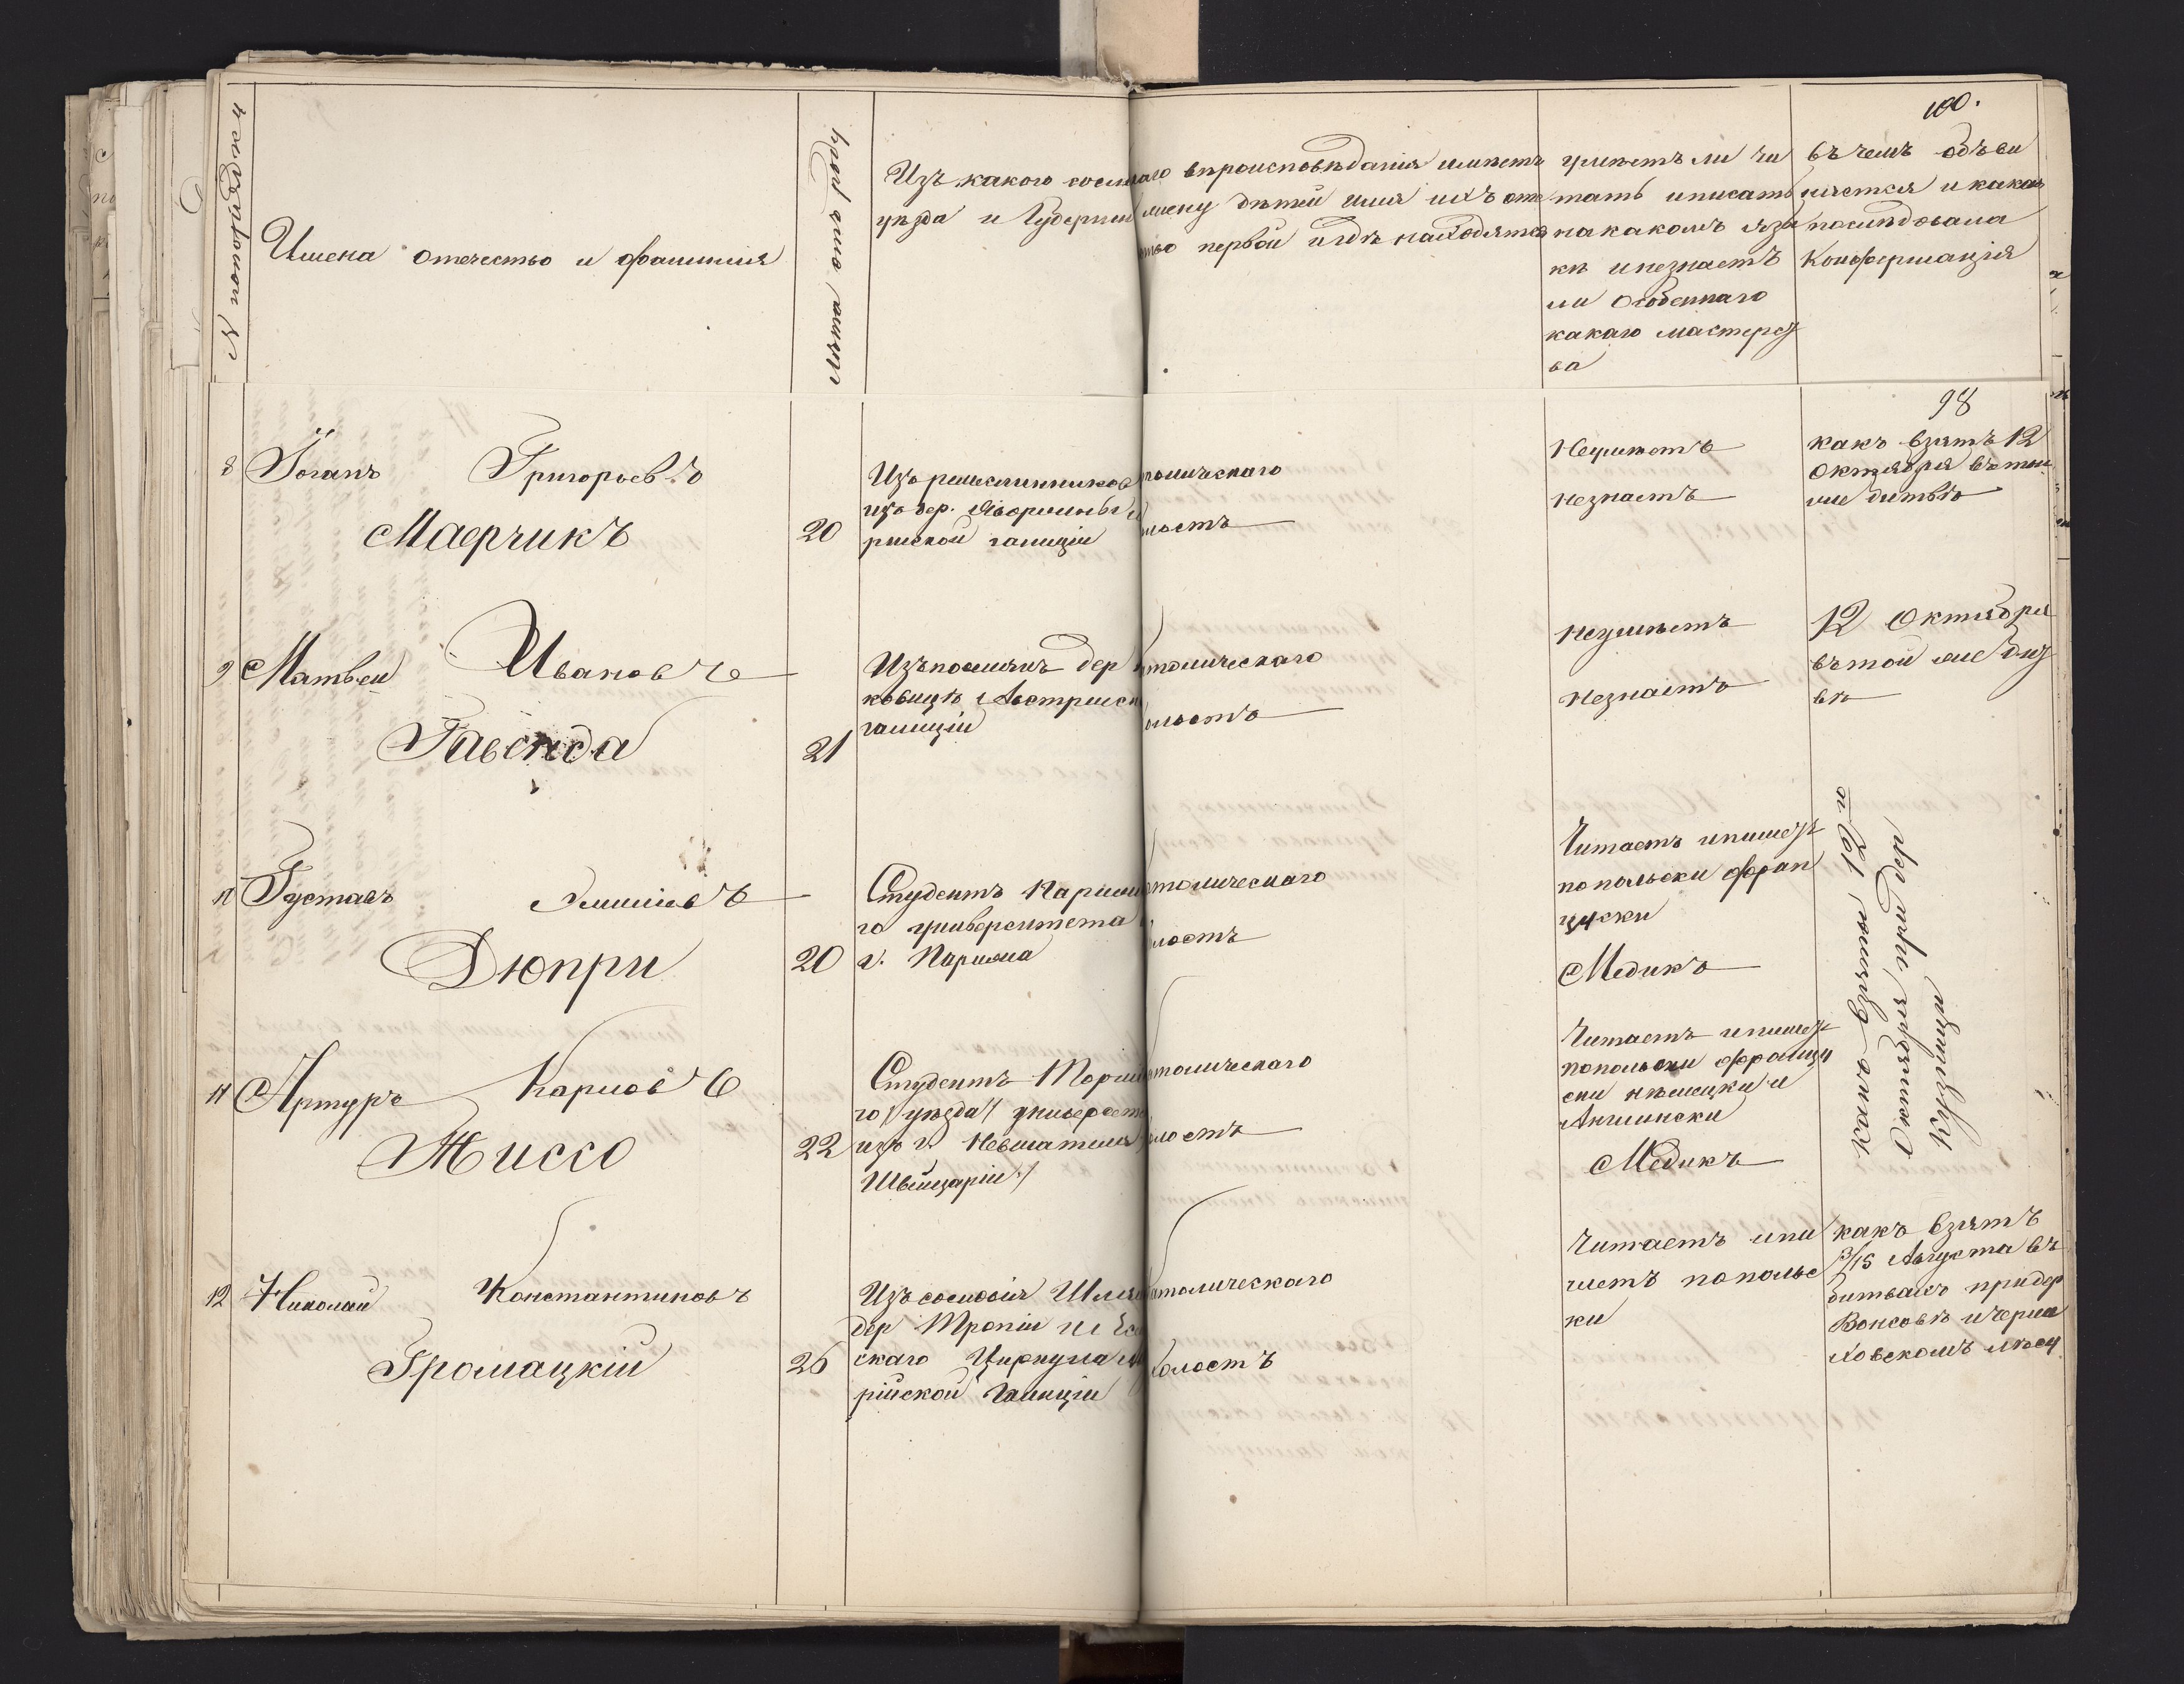 100.
№ попорядку
Имена отечество и фамилия
лѣта отъ роду
Изъ какого состо
уѣзда и Губерніи
аго вѣроисповѣданія имѣетъ
жену дѣтей имя ихъ оте
ство первой и гдѣ находятся
умѣетъ ли чи
тать и писать
на какомъ язы
кѣ и незнаетъ
ли Особеннаго
какаго мастерст
ва
въ чемъ обви
няется и какая
последовала
Конфермація
98
8 Іоганъ Григорьевъ
Маерчикъ
20
Изъ ремеслинниковъ
изъ дер. Яворшины
рийской галиціи
толическаго
лостъ
Неумѣетъ
незнаетъ
какъ взятъ 12
Октября въ той
же битвѣ
9 Матвѣй Ивановъ
Гавенда
21
Изъ посилянъ дер
ковицѣ Австрийск
галиціи
толическаго
олостъ
Неумѣетъ
незнаетъ
12 Октября
въ той же бит
вѣ
10 Густавъ Эмиліевъ
Дюпри
20
Студентъ Париж
го университета
г. Парижа
толическаго
лостъ
Читаетъ и пишетъ
попольски фран
цуски
Медикъ
Какъ взяты 12го
Октября при дер
11 Артуръ Карловъ
Жиссо
22
Студентъ
го /уѣзда/ универсет
изъ г. Невшателя
Швейцаріи /
толическаго
лостъ
Читаетъ и пишетъ
попольски француз
ски нѣмецки и
Англински
Медикъ
12 Николай Константиновъ
Громацкій
26
Изъ сословія Шля
дер
скаго Циркула
рійской Галиціи
атолическаго
олостъ
Читаетъ и пи
шетъ попольс
ки
какъ взятъ
3/15 Августа въ
битвахъ при дер